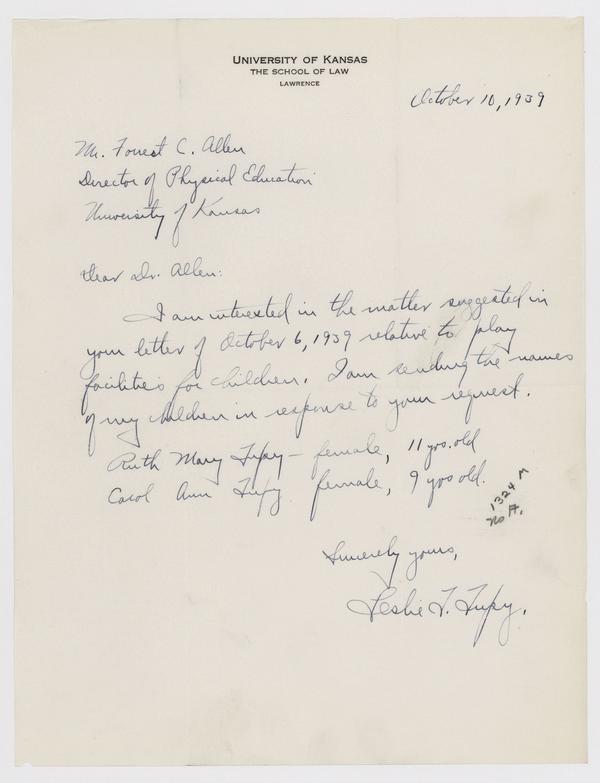 UNIVERSITY OF KANSAS
THE SCHOOL OF LAW
LAWRENCE
October 10, 1939
Mr. Forrest C. Allen
Director of Physical Education
University of Kansas
Dear Dr. Allen:
I am interested in the matter suggested in
your letter of October 6, 1939 relative to play
facilities for children. I am sending the names
of my children in response to your request.
Ruth Mary Tupy - female, 11 yrs. old
Carol Ann Tupy female, 9 yrs old.
1324 M
No H.
Sincerely yours,
Leslie T. Tupy.